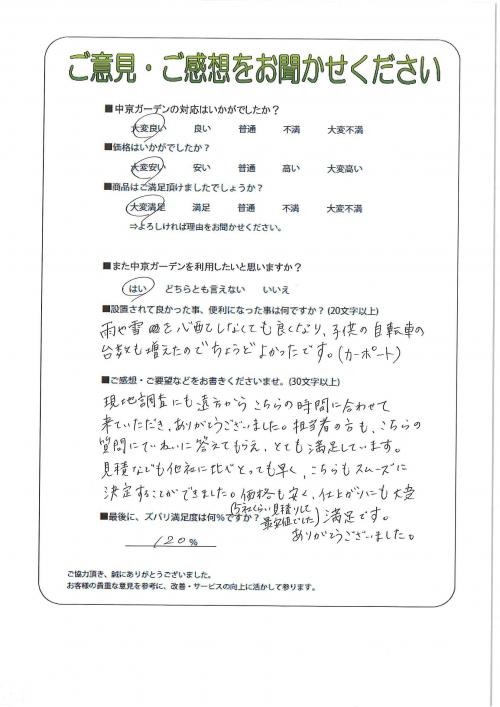 ご意見・ご感想をお聞かせください
■中京ガーデンの対応はいかがでしたか？
大変良い 良い 普通 不満 大変不満
■価格はいかがでしたか？
大変安い 安い 普通 高い 大変高い
■商品はご満足頂けましたでしょうか？
大変満足 満足 普通 不満 大変不満
⇒よろしければ理由をお聞かせください。
■また中京ガーデンを利用したいと思いますか？
はい どちらとも言えない いいえ
■設置されて良かった事、便利になった事は何ですか？(20文字以上)
雨や雪を心配しなくても良くなり、子供の自転車の
台数も増えたのでちょうどよかったです。(カーポート)
■ご感想・ご要望などをお書きくださいませ。(30文字以上)
現地調査にも遠方からこちらの時間に合わせて
来ていただき、ありがとうございました。担当者の方も、こちらの
質問にていねいに答えてもらえ、とても満足しています。
見積なども他社に比べとっても早く、こちらもスムーズに
決定することができました。価格も安く、仕上がりにも大変
(5社くらい見積りして
最安値でした)
満足です。
ありがとうございました。
■最後に、ズバリ満足度は何%ですか？
120%
ご協力頂き、誠にありがとうございました。
お客様の貴重な意見を参考に、改善・サービスの向上に活かして参ります。